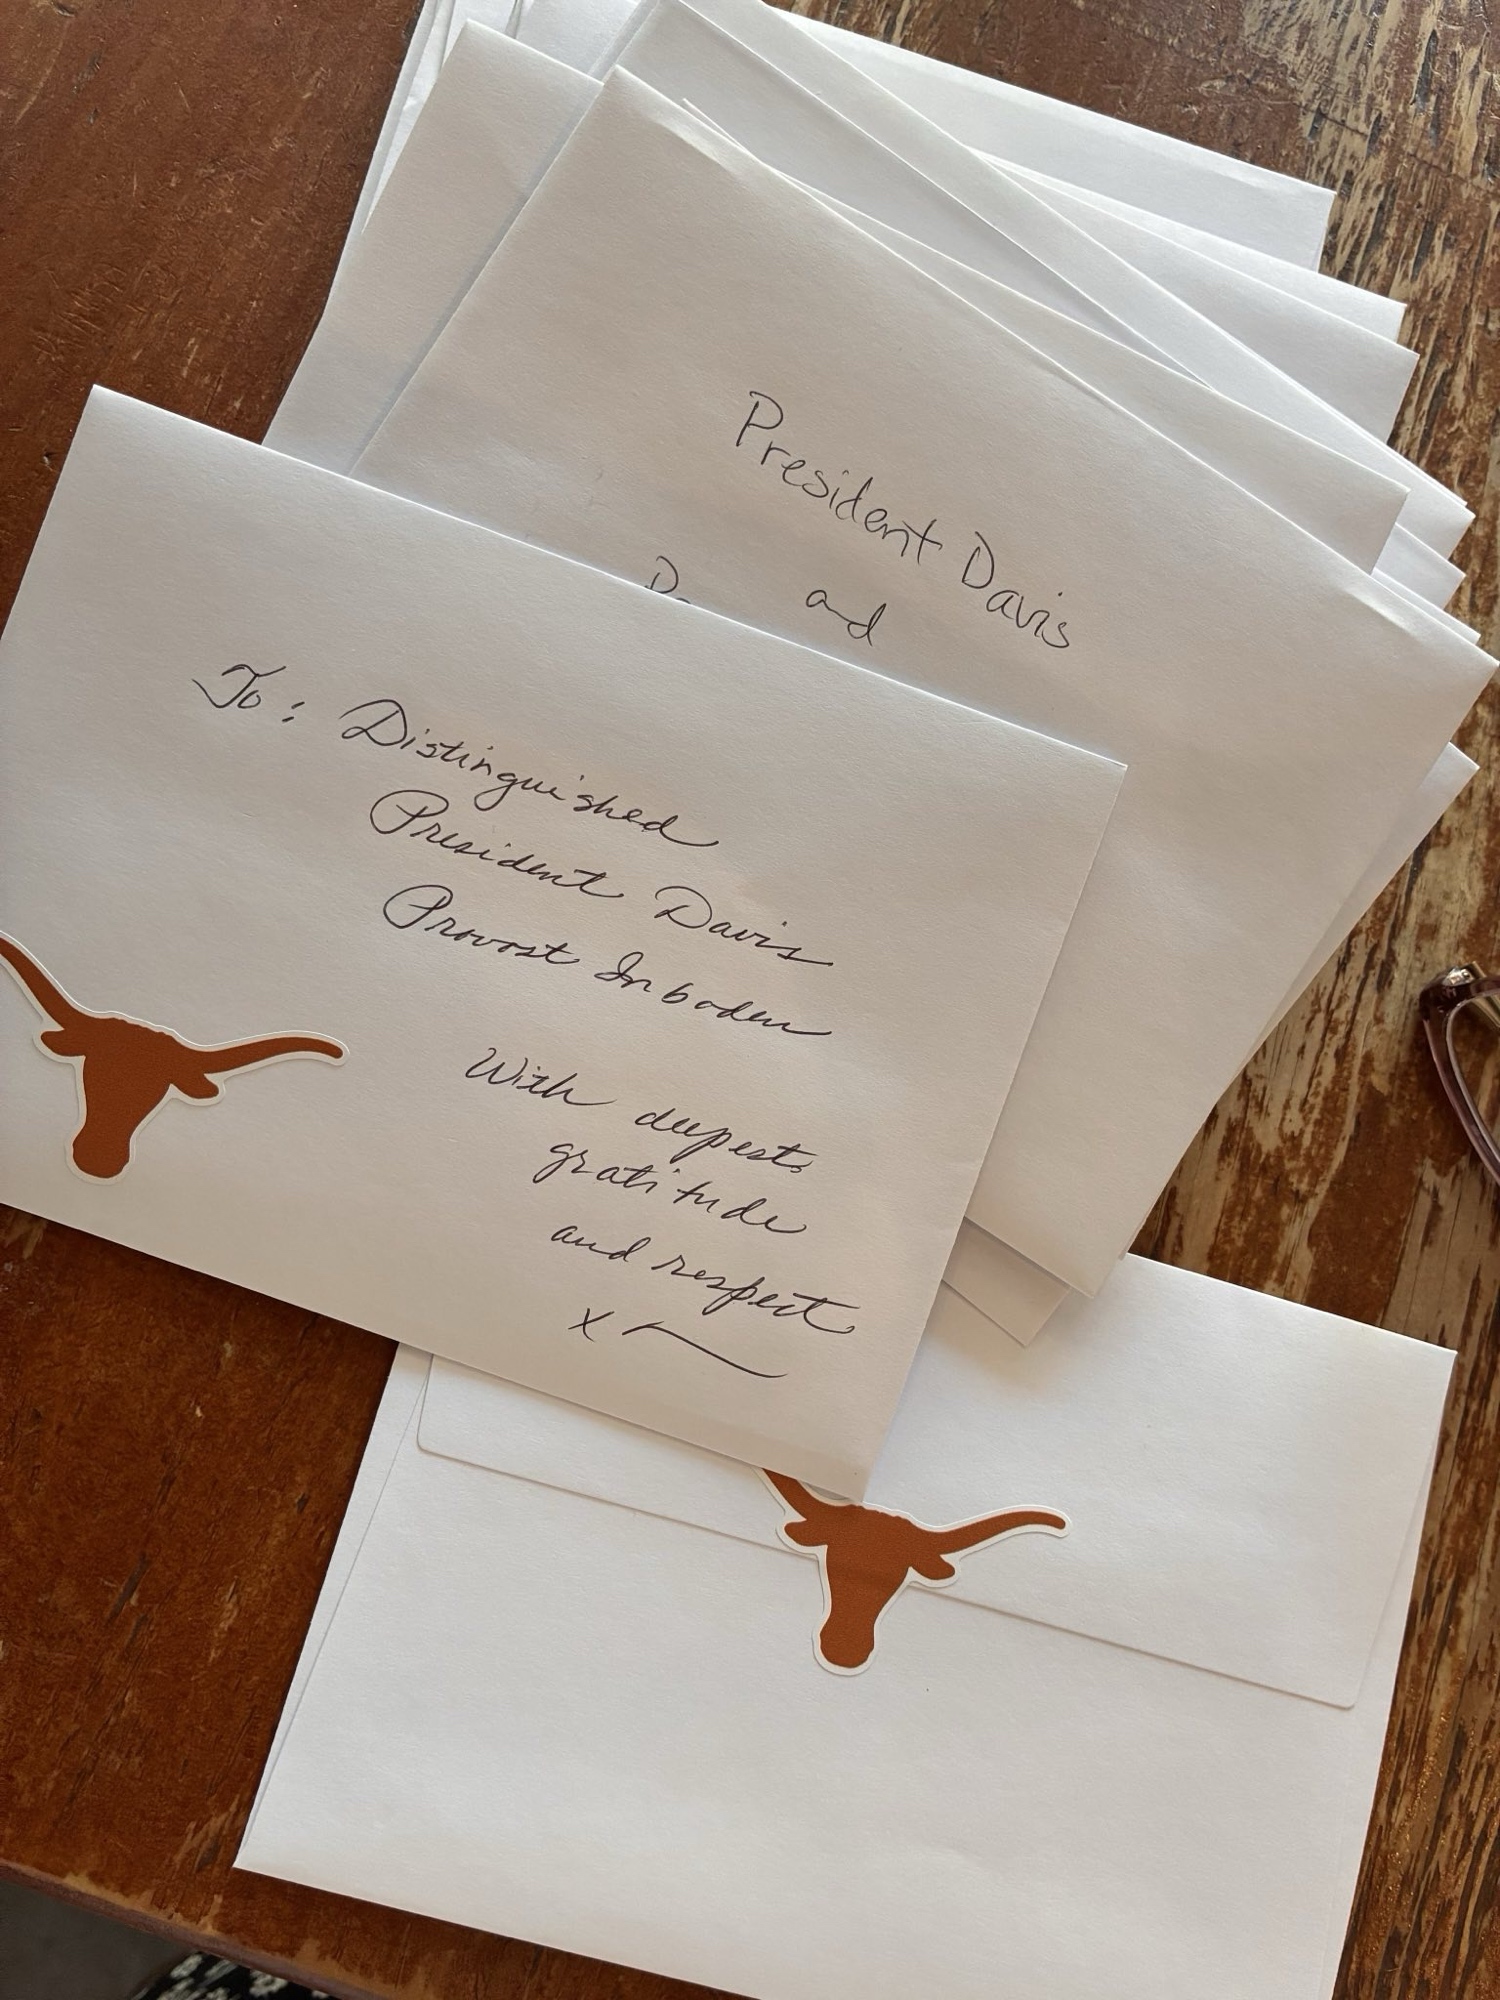 President Davis
and
To: Distinguished
President Davis
Provost Inboden
With deepest
gratitude
and respect
x